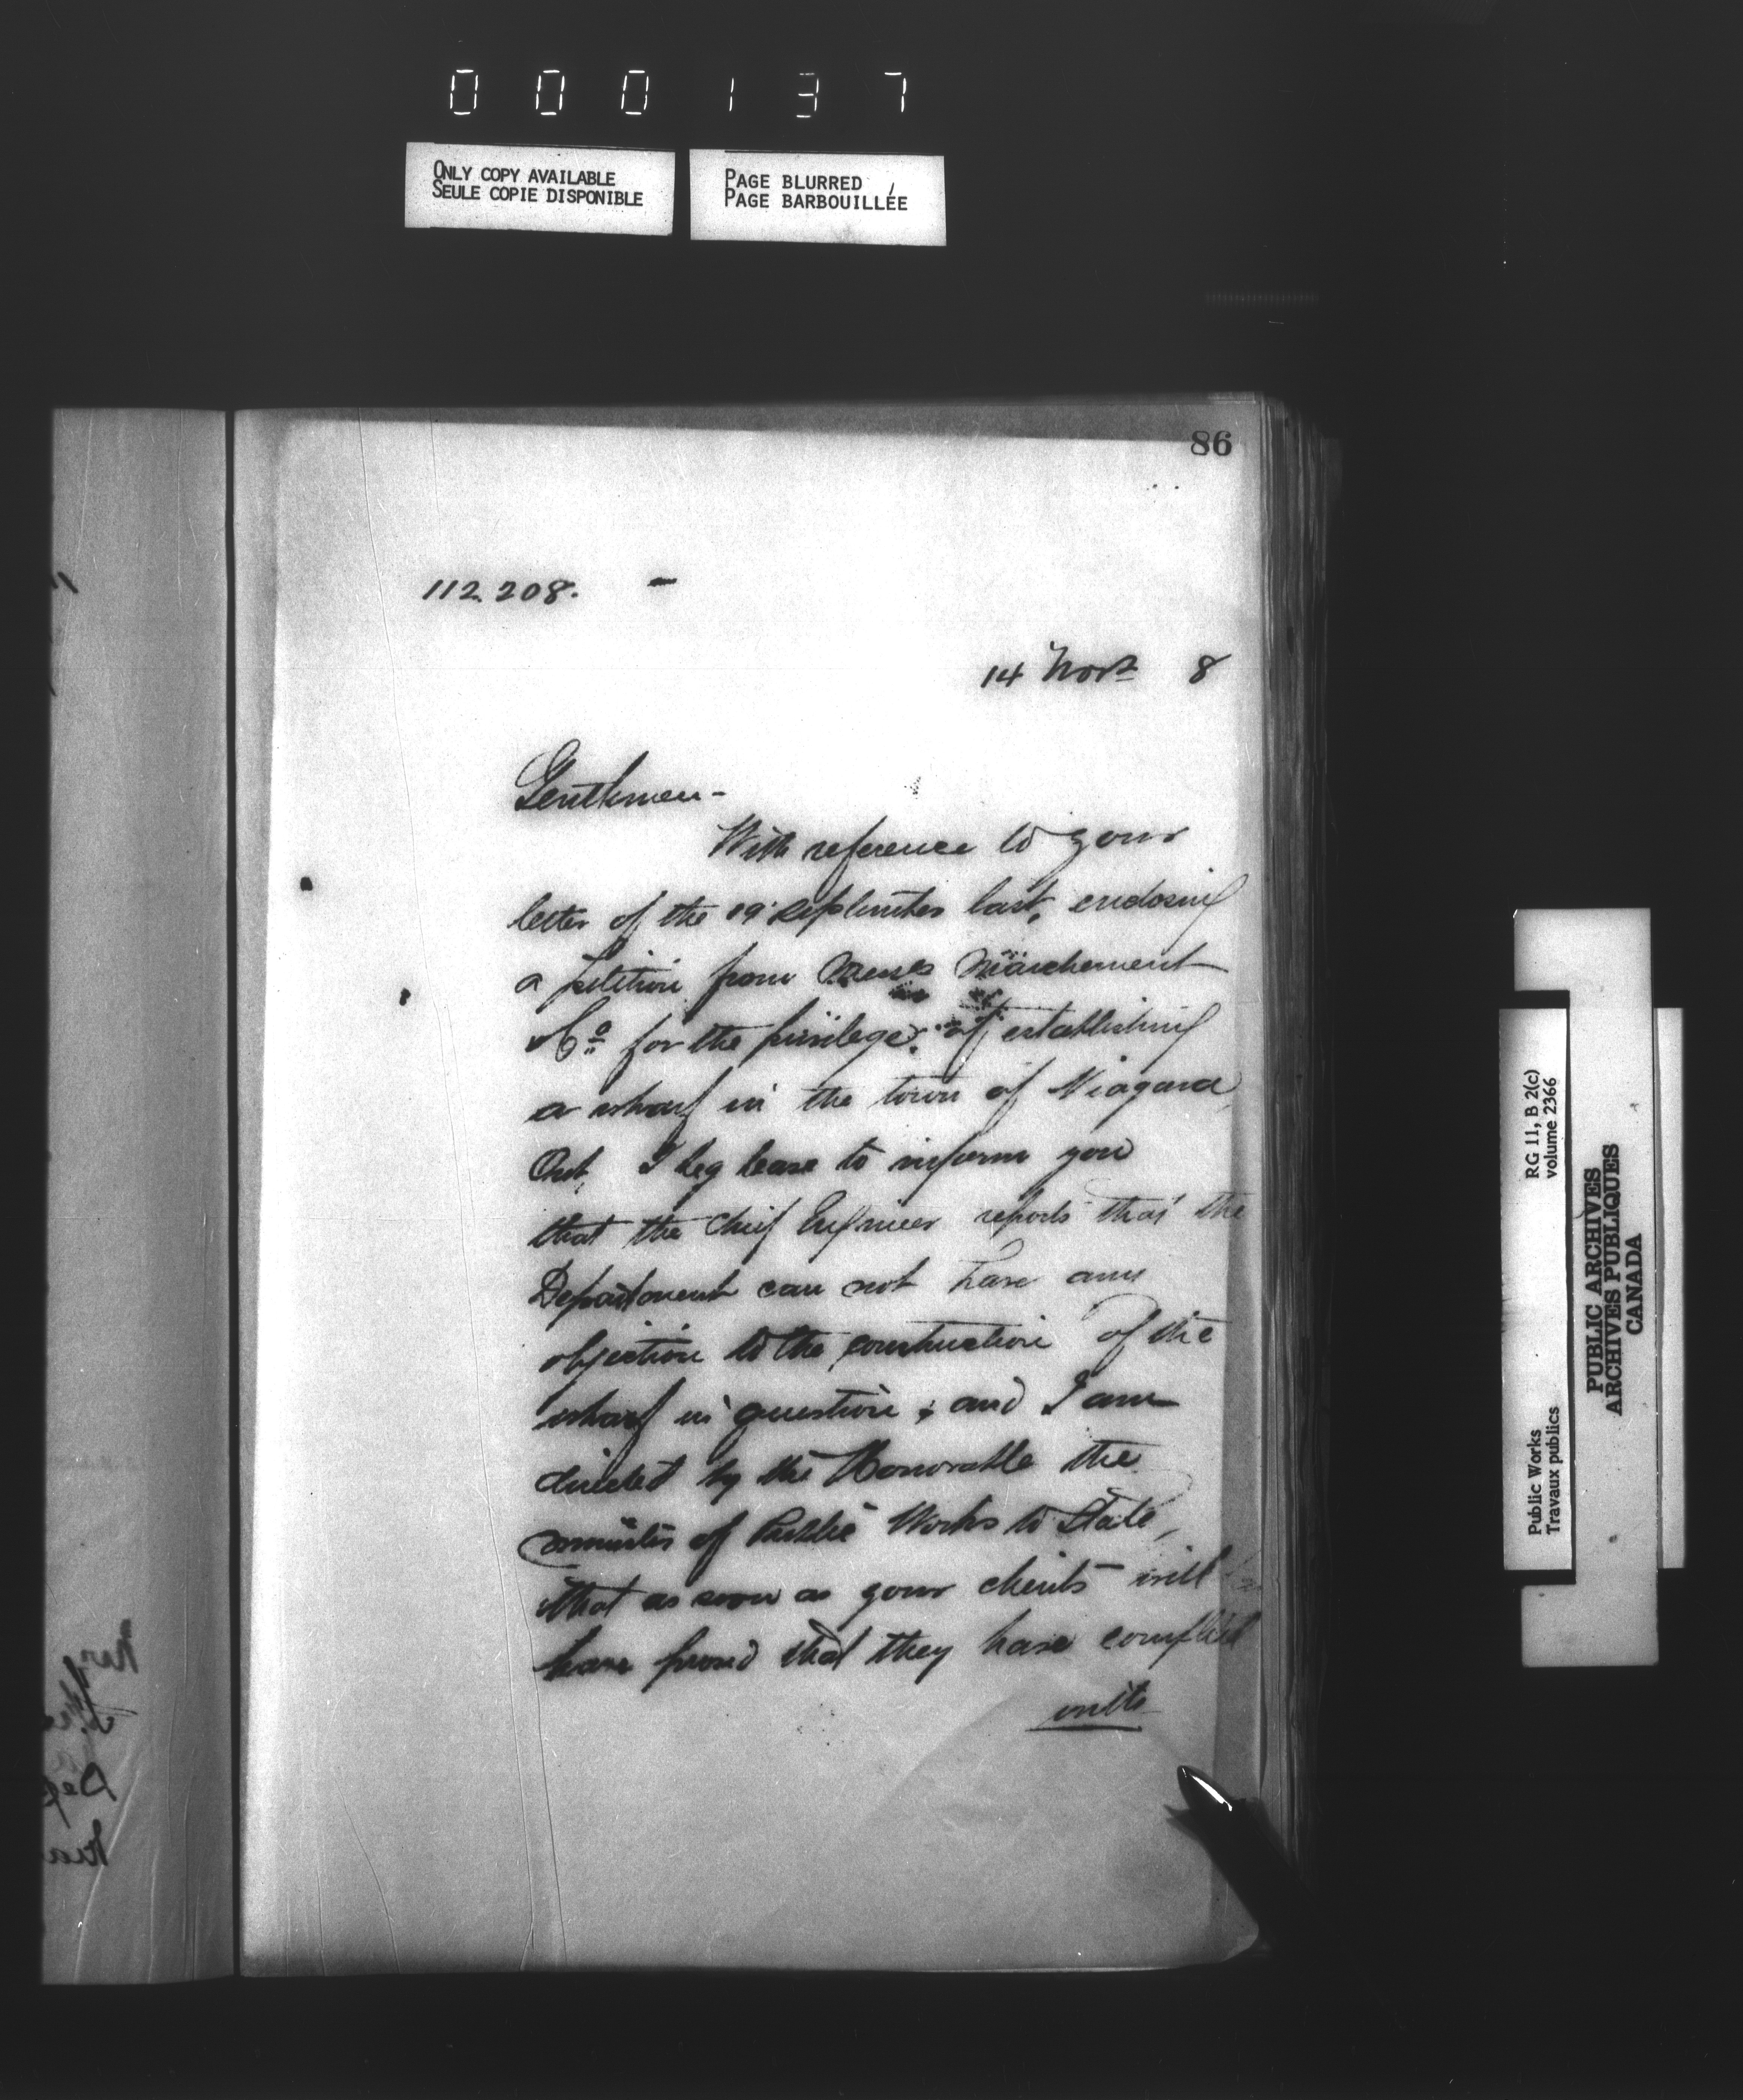 000137
ONLY COPY AVAILABLE
SEULE COPIE DISPONIBLE
PAGE BLURRED
PAGE BARBOUILLÉE
86
112.208. -
14 Novr 8
Gentlemen-
With reference to your
letter of the 19 September last, enclosing
a petition from Messrs Marchement
& Co for the privilege of establishing
a wharf in the town of Niagara,
Ont, I beg leave to inform you
that the Chief Engineer reports that the
Department can not have any
objection to the construction of the
wharf in question; and I am
directed by the Honorable the
Minister of Public Works to State,
that as soon as your clients will
have proved that they have complied
with
Public Works
Travaux publics
RG 11, B 2(c)
volume 2366
PUBLIC ARCHIVES
ARCHIVES PUBLIQUES
CANADA